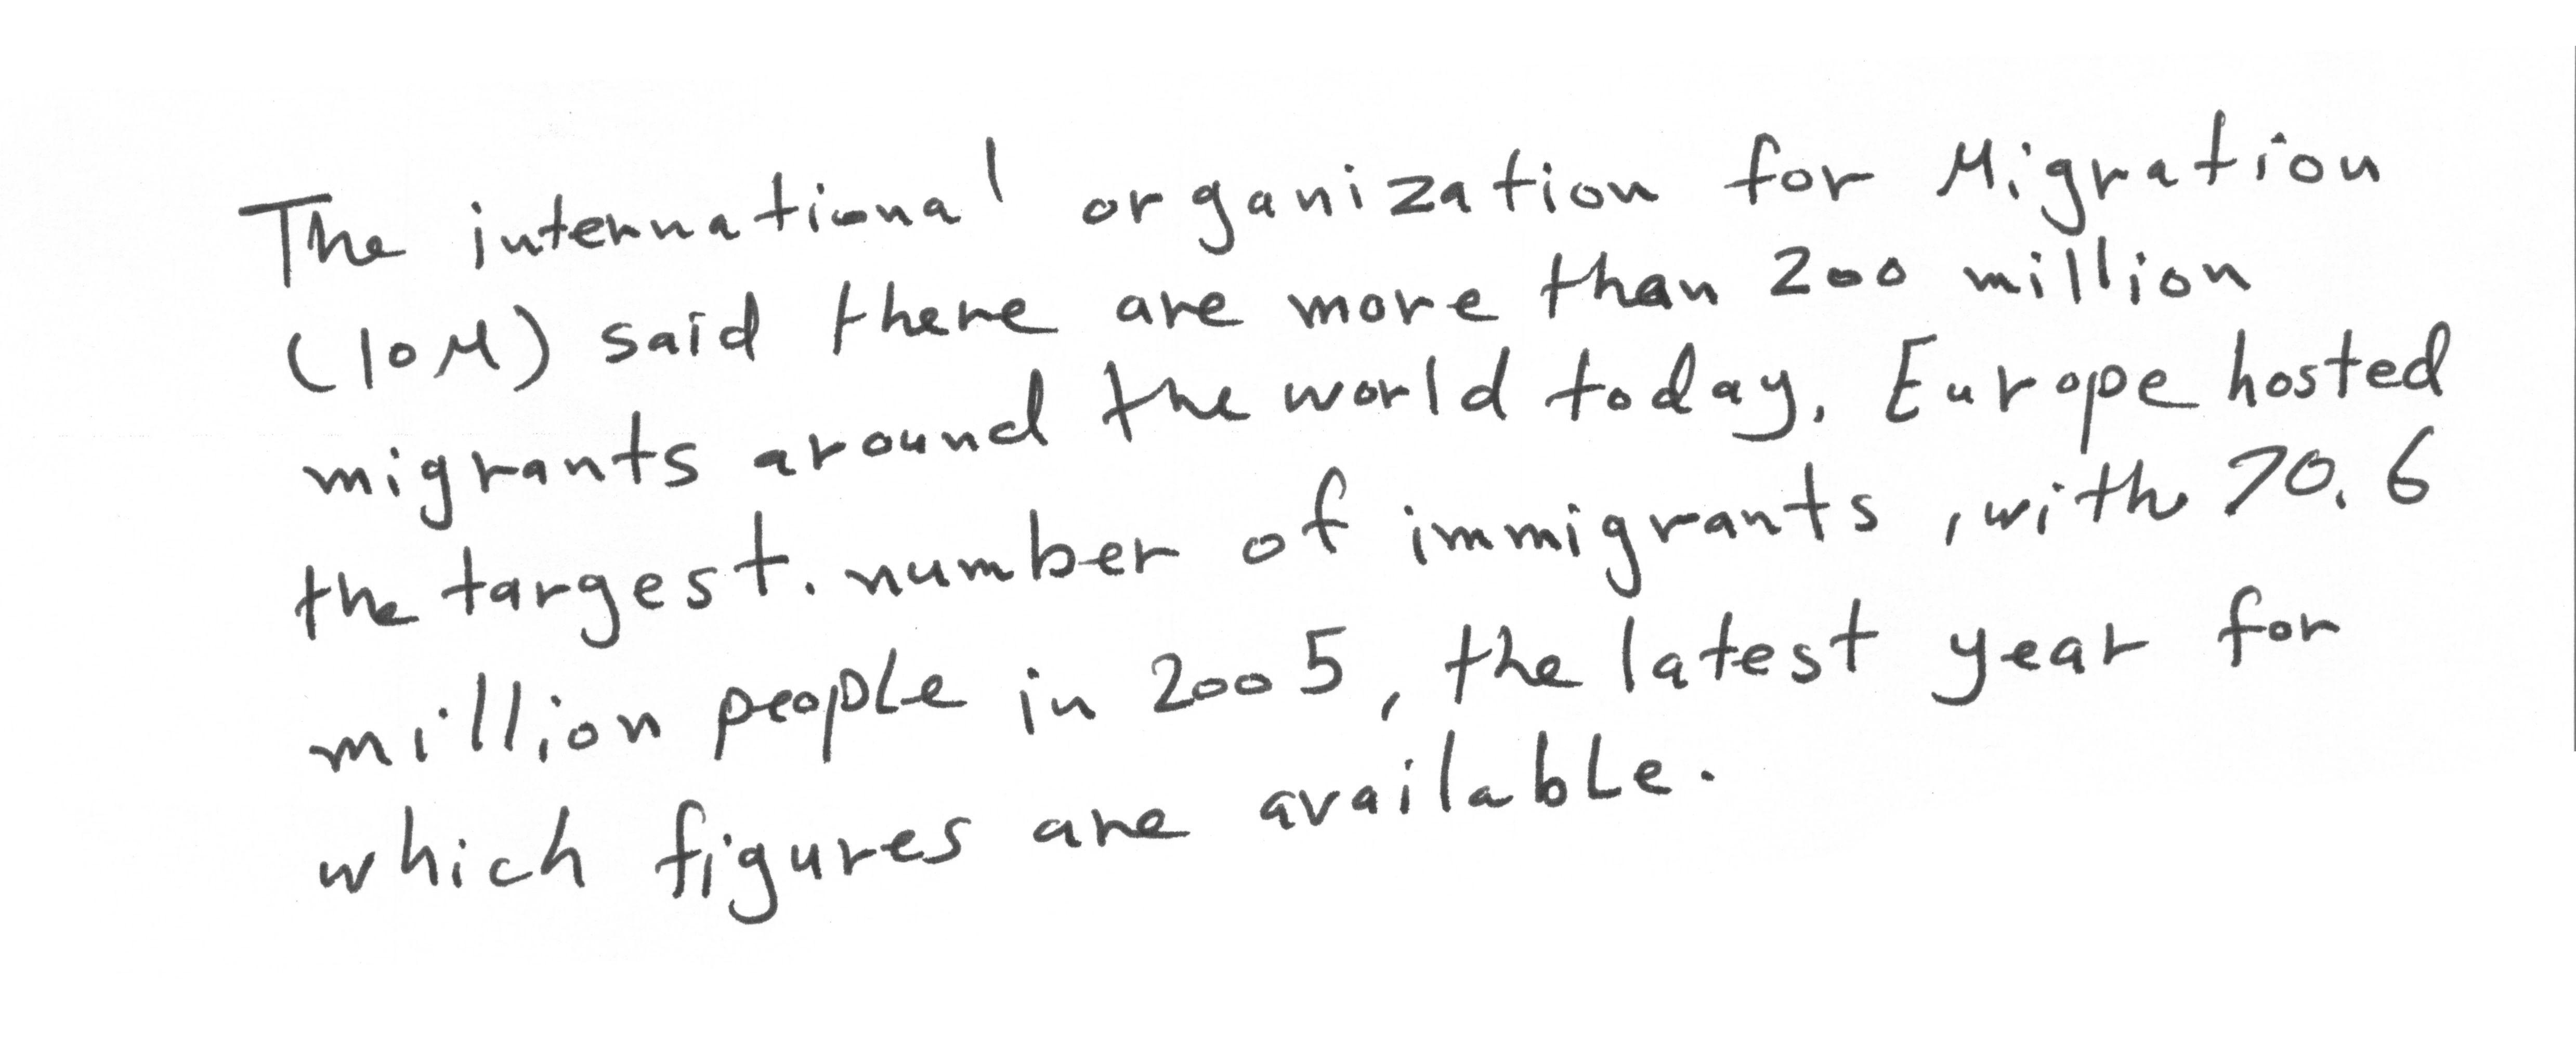 The international organization for Migration
(IOM) said there are more than 200 million
migrants around the world today. Europe hosted
the targest. number of immigrants, with 70.6
million people in 2005, the latest year for
which figures are available.